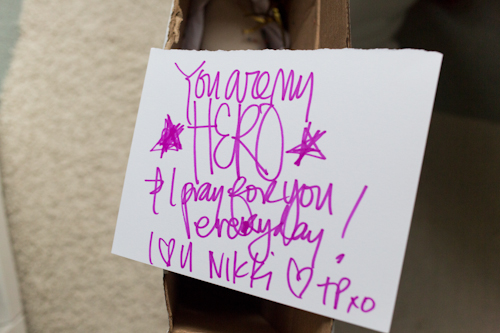 You are my
HERO
& I pray for you
everyday!
I ♡ U Nikki ♡ TP xo